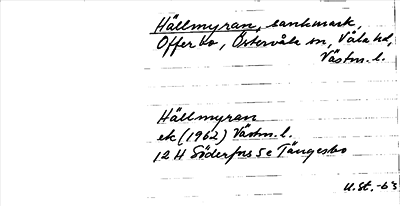 Hällmyran, sankmark,
Offerbo, Östervåla sn, Våla hd,
Västm. l.
Hällmyran
ek (1962) Västm. l.
12 H Söderfors 5e Tängesbo
U. St. -63